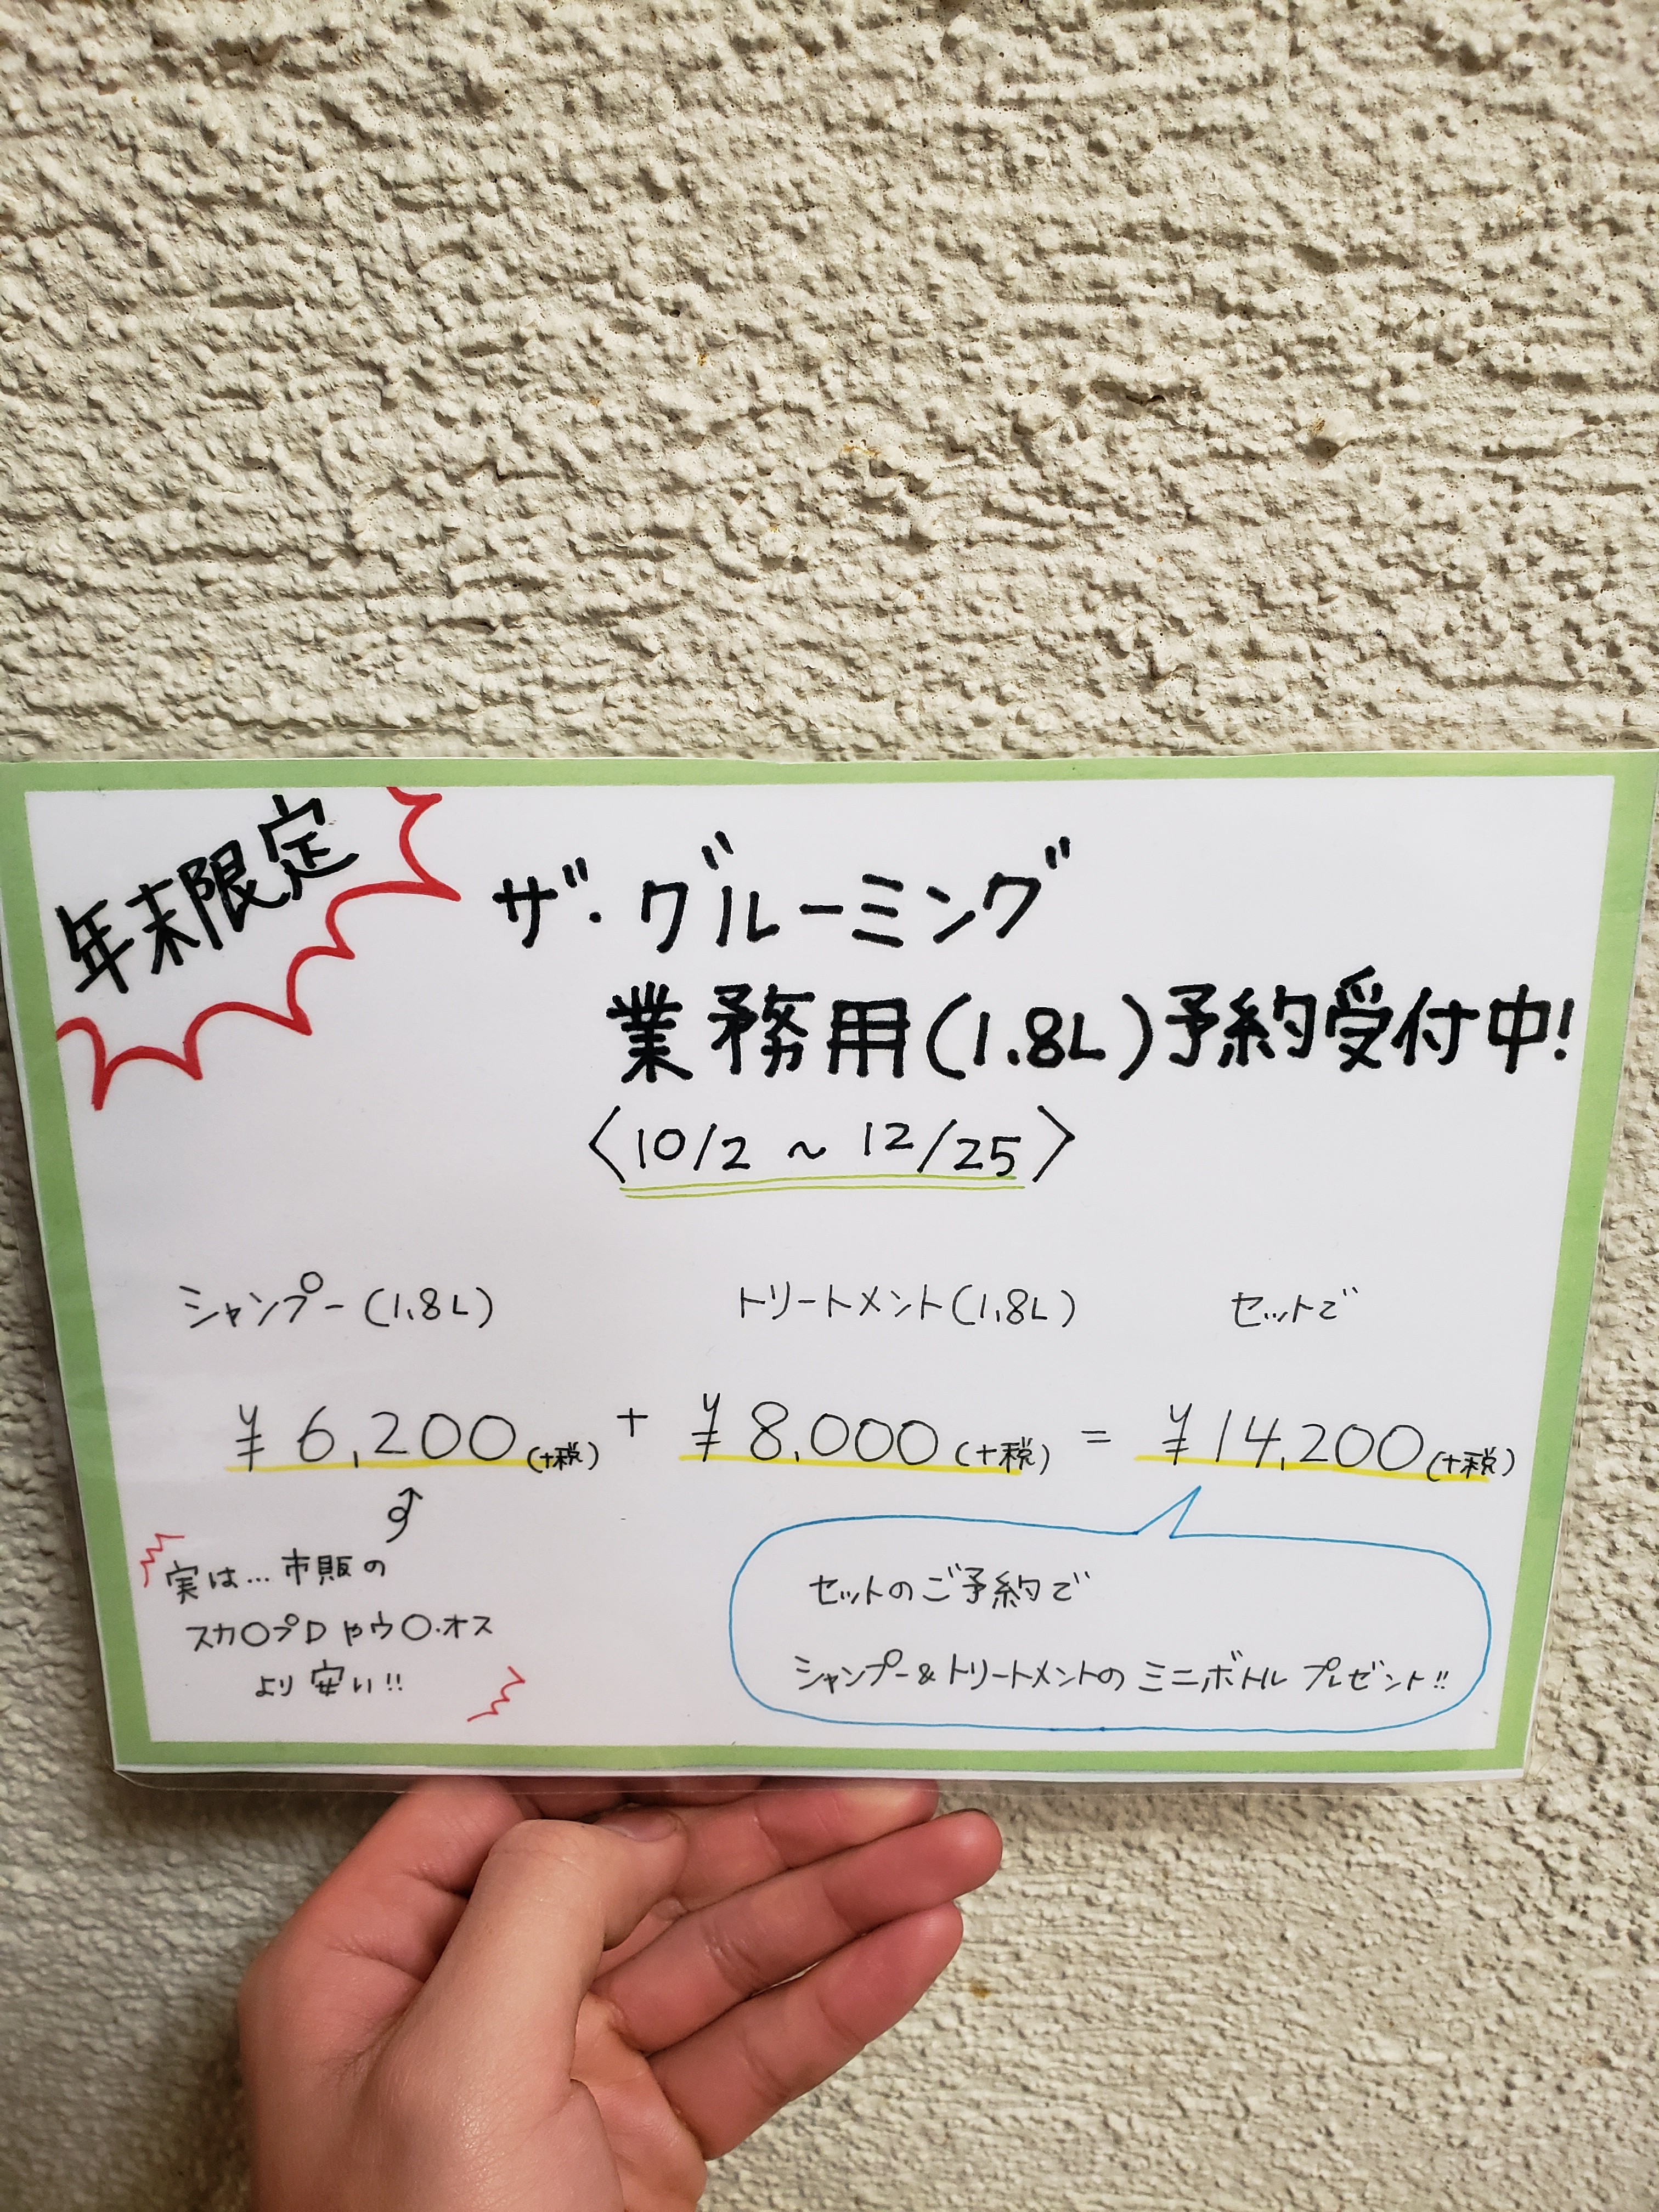 年末限定
ザ・グルーミング
業務用(1.8L)予約受付中!
〈10/2 ~ 12/25〉
シャンプー(1.8L) トリートメント(1.8L) セットで
¥6,200(+税) + ¥8,000(+税) = ¥14,200(+税)
実は…市販の
スカ○プDやウ○・オス
より安い!!
セットのご予約で
シャンプー&トリートメントのミニボトルプレゼント!!